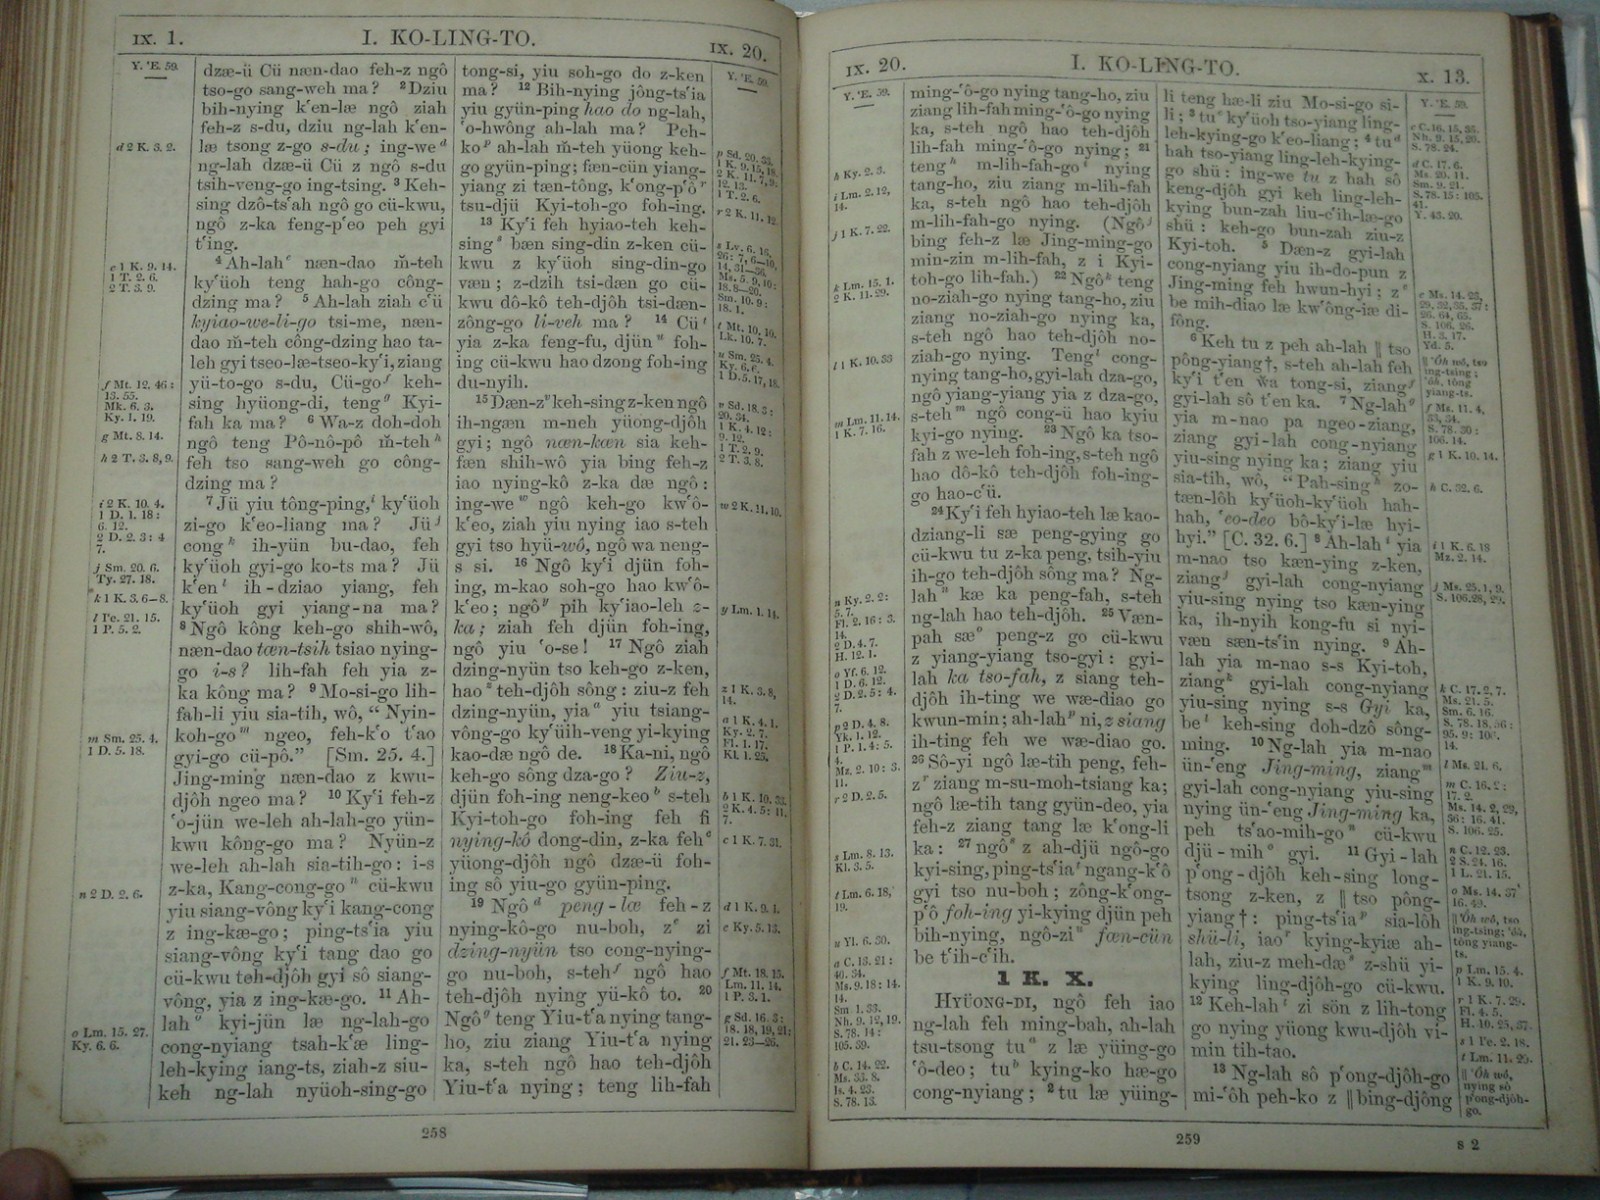 IX. 1. I. KO-LING-TO. IX. 20.
Y. 'E. 59.
d 2 K. 3. 2.
e 1 K. 9. 14.
1 T. 2. 6.
2 T. 3. 9.
f Mt. 12. 46:
13. 55.
Mk. 6. 3.
Ky. 1. 19.
g Mt. 8. 14.
h 2 T. 3. 8, 9.
i 2 K. 10. 4.
1 D. 1. 18:
6. 12.
2 D. 2. 3: 4
7.
j Sm. 20. 6.
Ty. 27. 18.
k 1 K. 3. 6–8.
l Pe. 21. 15.
1 P. 5. 2.
m Sm. 25. 4.
1 D. 5. 18.
n 2 D. 2. 6.
o Lm. 15. 27.
Ky. 6. 6.
dzæ-ü Cü næn-dao feh-z ngô
tso-go sang-weh ma? ²Dziu
bih-nying k'en-læ ngô ziah
feh-z s-du, dziu ng-lah k'en-
læ tsong z-go s-du; ing-we d
ng-lah dzæ-ü Cü z ngô s-du
tsih-veng-go ing-tsing. ³Keh-
sing dzô-ts'ah ngô go cü-kwu,
ngô z-ka feng-p'eo peh gyi
t'ing.
⁴Ah-lah e næn-dao m̄-teh
ky'üoh teng hah-go công-
dzing ma? ⁵Ah-lah ziah c'ü
kyiao-we-li-go tsi-me, næn-
dao m̄-teh công-dzing hao ta-
leh gyi tseo-læ-tseo-ky'i, ziang
yü-to-go s-du, Cü-go f keh-
sing hyüong-di, teng g Kyi-
fah ka ma? ⁶Wa-z doh-doh
ngô teng Pô-nô-pô m̄-teh h
feh tso sang-weh go công-
dzing ma?
⁷Jü yiu tông-ping, i ky'üoh
zi-go k'eo-liang ma? Jü j
cong k ih-yün bu-dao, feh
ky'üoh gyi-go ko-ts ma? Jü
k'en l ih-dziao yiang, feh
ky'üoh gyi yiang-na ma?
⁸Ngô kông keh-go shih-wô,
næn-dao tæn-tsih tsiao nying-
go i-s? lih-fah feh yia z-
ka kông ma? ⁹Mo-si-go lih-
fah-li yiu sia-tih, wô, “Nyin-
koh-go m ngeo, feh-k'o t'ao
gyi-go cü-pô.” [Sm. 25. 4.]
Jing-ming næn-dao z kwu-
djôh ngeo ma? ¹⁰Ky'i feh-z
'o-jün we-leh ah-lah-go yün-
kwu kông-go ma? Nyün-z
we-leh ah-lah sia-tih-go: i-s
z-ka, Kang-cong-go n cü-kwu
yiu siang-vông ky'i kang-cong
z ing-kæ-go; ping-ts'ia yiu
siang-vông ky'i tang dao go
cü-kwu teh-djôh gyi sô siang-
vông, yia z ing-kæ-go. ¹¹Ah-
lah o kyi-jün læ ng-lah-go
cong-nyiang tsah-k'æ ling-
leh-kying iang-ts, ziah-z siu-
keh ng-lah nyüoh-sing-go
tong-si, yiu soh-go do z-ken
ma? ¹²Bih-nying jông-ts'ia
yiu gyün-ping hao do ng-lah,
'o-hwông ah-lah ma? Peh-
ko p ah-lah m̄-teh yüong keh-
go gyün-ping; fæn-cün yiang-
yiang zi tæn-tông, k'ong-p'ô r
tsu-djü Kyi-toh-go foh-ing.
¹³Ky'i feh hyiao-teh keh-
sing s bæn sing-din z-ken cü-
kwu z ky'üoh sing-din-go
væn; z-dzih tsi-dæn go cü-
kwu dô-kô teh-djôh tsi-dæn-
zông-go li-veh ma? ¹⁴Cü t
yia z-ka feng-fu, djün u foh-
ing cü-kwu hao dzong foh-ing
du-nyih.
¹⁵Dæn-z v keh-sing z-ken ngô
ih-ngæn m-neh yüong-djôh
gyi; ngô næn-kæn sia keh-
fæn shih-wô yia bing feh-z
iao nying-kô z-ka dæ ngô:
ing-we w ngô keh-go kw'ô-
k'eo, ziah yiu nying iao s-teh
gyi tso hyü-wô, ngô wa neng-
s si. ¹⁶Ngô ky'i djün foh-
ing, m-kao soh-go hao kw'ô-
k'eo; ngô y pih ky'iao-leh z-
ka; ziah feh djün foh-ing,
ngô yiu 'o-se! ¹⁷Ngô ziah
dzing-nyün tso keh-go z-ken,
hao z teh-djôh sông: ziu-z feh
dzing-nyün, yia a yiu tsiang-
vông-go ky'üih-veng yi-kying
kao-dæ ngô de. ¹⁸Ka-ni, ngô
keh-go sông dza-go? Ziu-z,
djün foh-ing neng-keo b s-teh
Kyi-toh-go foh-ing feh fi
nying-kô dong-din, z-ka feh c
yüong-djôh ngô dzæ-ü foh-
ing sô yiu-go gyün-ping.
¹⁹Ngô d peng-læ feh-z
nying-kô-go nu-boh, z e zi
dzing-nyün tso cong-nying-
go nu-boh, s-teh f ngô hao
teh-djôh nying yü-kô to. ²⁰
Ngô g teng Yiu-t'a nying tang-
ho, ziu ziang Yiu-t'a nying
ka, s-teh ngô hao teh-djôh
Yiu-t'a nying; teng lih-fah
Y. 'E. 59.
p Sd. 20. 33.
1 K. 9. 15, 18.
2 K. 11. 7, 9:
12. 13.
1 T. 2. 6.
r 2 K. 11. 12.
s Lv. 6. 16,
26: 7, 6–10,
14, 31–36.
Ms. 5. 9, 10:
18. 8–20.
Sm. 10. 9:
18. 1.
t Mt. 10. 10.
Lk. 10. 7.
u Sm. 25. 4.
Ky. 6. 6.
1 D. 5. 17, 18.
v Sd. 18. 3:
20. 34.
1 K. 4. 12:
9. 12.
1 T. 2. 9.
2 T. 3. 8.
w 2 K. 11. 10.
y Lm. 1. 14.
z 1 K. 3. 8,
14.
a 1 K. 4. 1.
Ky. 2. 7.
Fl. 1. 17.
Kl. 1. 25.
b 1 K. 10. 33.
2 K. 4. 5: 11.
7.
c 1 K. 7. 31.
d 1 K. 9. 1.
e Ky. 5. 13.
f Mt. 18. 15.
Lm. 11. 14.
1 P. 3. 1.
g Sd. 16. 3:
18. 18, 19, 21:
21. 23–26.
258
IX. 20. I. KO-LING-TO. X. 13.
Y. 'E. 59.
h Ky. 2. 3.
i Lm. 2. 12,
14.
j 1 K. 7. 22.
k Lm. 15. 1.
2 K. 11. 29.
l 1 K. 10. 33
m Lm. 11. 14.
1 K. 7. 16.
n Ky. 2. 2:
5. 7.
Fl. 2. 16: 3.
14.
2 D. 4. 7.
H. 12. 1.
o Yf. 6. 12.
1 D. 6. 12.
2 D. 2. 5: 4.
7.
p 2 D. 4. 8.
Yk. 1. 12.
1 P. 1. 4: 5.
4.
Mz. 2. 10: 3.
11.
r 2 D. 2. 5.
s Lm. 8. 13.
Kl. 3. 5.
t Lm. 6. 18,
19.
u Yl. 6. 30.
a C. 13. 21:
40. 34.
Ms. 9. 18: 14.
14.
Sm. 1. 33.
Nh. 9. 12, 19.
S. 78. 14:
105. 39.
b C. 14. 22.
Ms. 33. 8.
Is. 4. 23.
S. 78. 13.
ming-'ô-go nying tang-ho, ziu
ziang lih-fah ming-'ô-go nying
ka, s-teh ngô hao teh-djôh
lih-fah ming-'ô-go nying; ²¹
teng h m-lih-fah-go i nying
tang-ho, ziu ziang m-lih-fah
ka, s-teh ngô hao teh-djôh
m-lih-fah-go nying. (Ngô j
bing feh-z læ Jing-ming-go
min-zin m-lih-fah, z i Kyi-
toh-go lih-fah.) ²²Ngô k teng
no-ziah-go nying tang-ho, ziu
ziang no-ziah-go nying ka,
s-teh ngô hao teh-djôh no-
ziah-go nying. Teng l cong-
nying tang-ho, gyi-lah dza-go,
ngô yiang-yiang yia z dza-go,
s-teh m ngô cong-ü hao kyiu
kyi-go nying. ²³Ngô ka tso-
fah z we-leh foh-ing, s-teh ngô
hao dô-kô teh-djôh foh-ing-
go hao-c'ü.
²⁴Ky'i feh hyiao-teh læ kao-
dziang-li sæ peng-gying go
cü-kwu tu z-ka peng, tsih-yiu
ih-go teh-djôh sông ma? Ng-
lah n kæ ka peng-fah, s-teh
ng-lah hao teh-djôh. ²⁵Væn-
pah sæ o peng-z go cü-kwu
z yiang-yiang tso-gyi: gyi-
lah ka tso-fah, z siang teh-
djôh ih-ting we wæ-diao go
kwun-min; ah-lah p ni, z siang
ih-ting feh we wæ-diao go.
²⁶Sô-yi ngô læ-tih peng, feh-
z r ziang m-su-moh-tsiang ka;
ngô læ-tih tang gyün-deo, yia
feh-z ziang tang læ k'ong-li
ka: ²⁷ngô s z ah-djü ngô-go
kyi-sing, ping-ts'ia t ngang-k'ô
gyi tso nu-boh; zông-k'ong-
p'ô foh-ing yi-kying djün peh
bih-nying, ngô-zi u fæn-cün
be t'ih-c'ih.
1 K. X.
HYÜONG-DI, ngô feh iao
ng-lah feh ming-bah, ah-lah
tsu-tsong tu a z læ yüing-go
'ô-deo; tu b kying-ko hæ-go
cong-nyiang; ²tu læ yüing-
li teng hæ-li ziu Mo-si-go si-
li; ³tu c ky'üoh tso-yiang ling-
leh-kying-go k'eo-liang; ⁴tu d
hah tso-yiang ling-leh-kying-
go shü: ing-we tu z hah sô
keng-djôh gyi keh ling-leh-
kying bun-zah liu-c'ih-læ-go
shü: keh-go bun-zah ziu-z
Kyi-toh. ⁵Dæn-z gyi-lah
cong-nyiang yiu ih-do-pun z
Jing-ming feh hwun-hyi: z e
be mih-diao læ kw'ông-iæ di-
fông.
⁶Keh tu z peh ah-lah ‖ tso
pông-yiang†, s-teh ah-lah feh
ky'i t'en wa tong-si, ziang f
gyi-lah sô t'en ka. ⁷Ng-lah g
yia m-nao pa ngeo-ziang,
ziang gyi-lah cong-nyiang
yiu-sing nying ka; ziang yiu
sia-tih, wô, “Pah-sing h zo-
tæn-lôh ky'üoh-ky'üoh hah-
hah, 'eo-deo bô-ky'i-læ hyi-
hyi.” [C. 32. 6.] ⁸Ah-lah i yia
m-nao tso kæn-ying z-ken,
ziang j gyi-lah cong-nyiang
yiu-sing nying tso kæn-ying
ka, ih-nyih kong-fu si nyi-
væn sæn-ts'in nying. ⁹Ah-
lah yia m-nao s-s Kyi-toh,
ziang k gyi-lah cong-nyiang
yiu-sing nying s-s Gyi ka,
be l keh-sing doh-dzô sông-
ming. ¹⁰Ng-lah yia m-nao
ün-'eng Jing-ming, ziang m
gyi-lah cong-nyiang yiu-sing
nying ün-'eng Jing-ming ka,
peh ts'ao-mih-go n cü-kwu
djü-mih o gyi. ¹¹Gyi-lah
p'ong-djôh keh-sing long-
tsong z-ken, z ‖ tso pông-
yiang†: ping-ts'ia p sia-lôh
shü-li, iao r kying-kyiæ ah-
lah, ziu-z meh-dæ s z-shü yi-
kying ling-djôh-go cü-kwu.
¹²Keh-lah t zi sön z lih-tong
go nying yüong kwu-djôh vi-
min tih-tao.
¹³Ng-lah sô p'ong-djôh-go
mi-'ôh peh-ko z ‖ bing-djông
Y. 'E. 59.
c C. 16. 15, 35.
Nh. 9. 15, 20.
S. 78. 24.
d C. 17. 6.
Ms. 20. 11.
Sm. 9. 21.
S. 78. 15: 105.
41.
Y. 43. 20.
e Ms. 14. 23,
29. 32, 35, 37:
26. 64, 65.
S. 106. 26.
H. 3. 17.
Yd. 5.
‖ 'Ôh wô, tso
ing-tsing;
'ôh, tông
yiang-ts.
f Ms. 11. 4,
33, 34.
S. 78. 30:
106. 14.
g 1 K. 10. 14.
h C. 32. 6.
i 1 K. 6. 18
Mz. 2. 14.
j Ms. 25. 1, 9.
S. 106. 28, 29.
k C. 17. 2, 7.
Ms. 21. 5.
Sm. 6. 16.
S. 78. 18, 56:
95. 9: 106.
14.
l Ms. 21. 6.
m C. 16. 2:
17. 2.
Ms. 14. 2, 29,
36: 16. 41.
S. 106. 25.
n C. 12. 23.
2 S. 24. 16.
1 L. 21. 15.
o Ms. 14. 37
16. 49.
‖ 'Ôh wô, tso
ing-tsing; 'ôh,
tông yiang-
ts.
p Lm. 15. 4.
1 K. 9. 10.
r 1 K. 7. 29.
Fl. 4. 5.
H. 10. 25, 37.
s 1 Pe. 2. 18.
t Lm. 11. 20.
‖ 'Ôh wô,
nying sô
p'ong-djôh-
go.
259
S 2